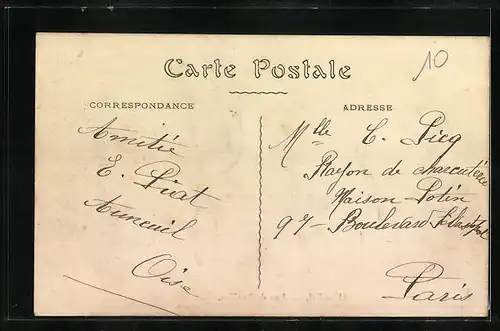 10
Carte Postale
CORRESPONDANCE
ADRESSE
Amitié
E. Piat
Auneuil
Oise
Mlle C. Picq
Rayon de charcuterie
Maison Potin
97 - Boulevard Sébastopol
Paris